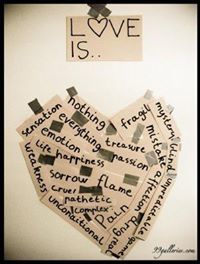 LOVE
IS..
nothing
sensation
everything
emotion
life
happiness
weakness
sorrow
cruel
pathetic
complex
unconditional
fragile
treasure
passion
flame
pain
mystery
blind
mistake
affection
drug
game
99galleries.com